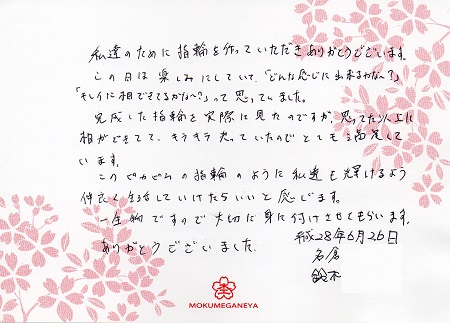 私達のために指輪を作っていただきありがとうございます。
この日は楽しみにしていて、「どんな感じに出来るかな~?」
「キレイに相できてるかな~?」って思っていました。
完成した指輪を実際に見たのですが、思ってた以上に
相ができてて、キラキラ光っていたのでとても満足して
います。
このピカピカの指輪のように私達も輝けるよう
仲良く生活していけたらいいと感じます。
一生物ですので大切に身に付けさせてもらいます。
ありがとうございました。
平成28年6月26日
名倉
鈴木
MOKUMEGANEYA